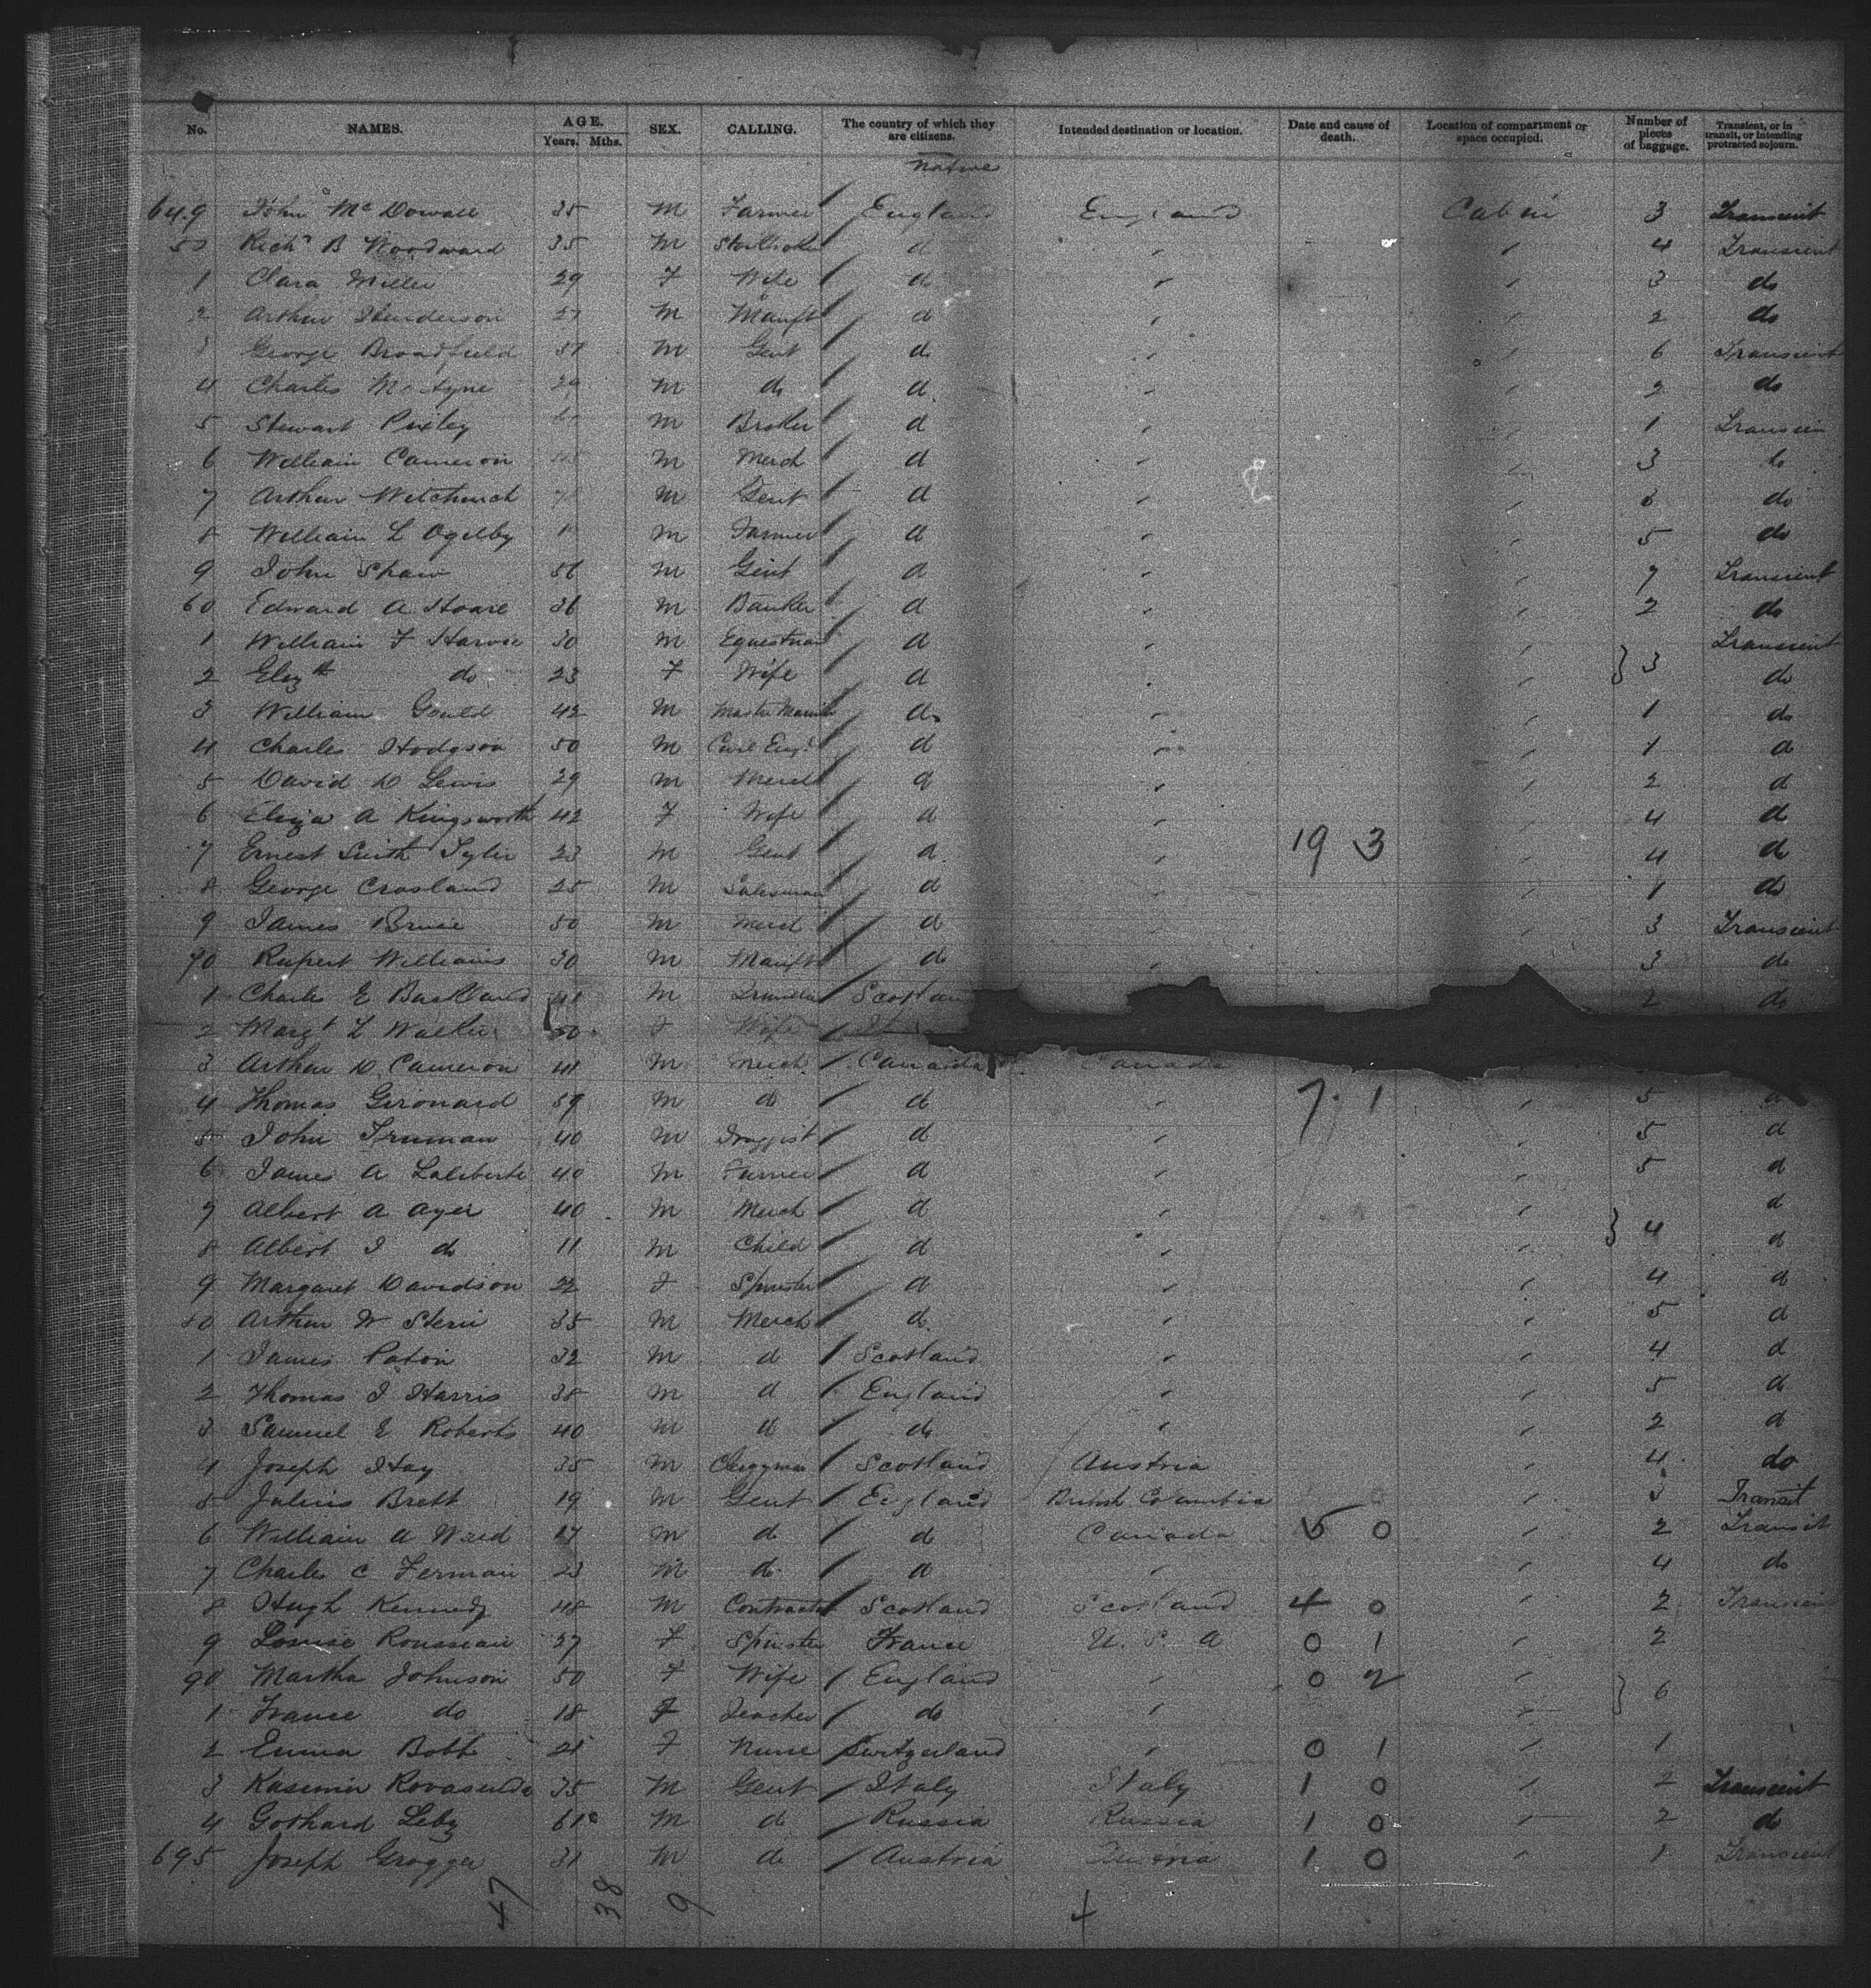 No. NAMES. AGE. Years. Mths. SEX. CALLING. The country of which they are citizens. Intended destination or location. Date and cause of death. Location of compartment or space occupied. Number of pieces of baggage. Transient, or in transit, or intending protracted sojourn.
Native
649 John Mc Dowall 35 M Farmer England England Cabin 3 Transient
50 Richd B Woodward 35 M d 4 Transient
1 Clara Miller 29 F Wife d 3 do
2 Arthur Henderson 27 M Manft d 2 do
3 George Broadfield M Gent d 6 Transient
4 Charles 29 M do d 2 do
5 Stewart Pixley M Broker d 1 Transien
6 William Cameron M Merch d 3 do
7 Arthur Witchurch M Gent d do
8 William L Ogilby M Farmer d 5 do
9 John Shaw 56 M Gent d 7 Transient
60 Edward A Hoare 36 M Banker d 2 do
1 William F Harvie 30 M Equestrian d Transient
2 Elizth do 23 F Wife d } 3 do
3 William Gould 42 M Master Marin d 1 do
4 Charles Hodgson 50 M Civil Engr d 1 d
5 David D Lewis 29 M Merch d 2 d
6 Eliza A Kingsworth 42 F Wife d 4 d
7 Ernest Smith Tyler 23 M Gent d 19 3 4 do
8 George Crosland 25 M Salesman d 1 do
9 James Bruce 50 M Merch d 3 Transient
70 Rupert Williams 30 M Manft do 3 do
1 Charles E M Scotlan 2 do
2 Margt L Walker 50 F Wife
3 Arthur D Cameron 41 M Merch Canada Canada
4 Thomas Gironard 59 M d d 7. 1 5 d
5 John Truman 40 M Druggist d 5 d
6 James A Laliberte 40 M Farmer d 5 d
7 Albert A Ayer 40 M Merch d d
8 Albert J do 11 M Child d } 4 d
9 Margaret Davidson 22 F Spinster d 4 d
80 Arthur W Stern 35 M Merch d 5 d
1 James Paton 32 M d Scotland 4 d
2 Thomas J Harris 38 M d England 5 d
3 Samuel E Roberts 40 M d do 2 d
4 Joseph Hay 35 M Clergyman Scotland Austria 4 do
5 Julius Brett 19 M Gent England British Columbia 3 Transit
6 William A Ward 27 M d d Canada 5 0 2 Transit
7 Charles C Ferman 23 M do d 4 do
8 Hugh Kennedy 48 M Contractor Scotland Scotland 4 0 2 Transient
9 Louise Rousseau 27 F Spinster France U. S. A 0 1 2
90 Martha Johnson 50 F Wife England 0 2
1 France do 18 F Teacher do } 6
2 Emma Bott F Nurse Switzerland 0 1 1
3 Kasimir 35 M Gent Italy Italy 1 0 2 Transient
4 Gothard Leby 61 M d Russia Russia 1 0 2 do
695 Joseph Grogger 31 M d Austria 1 0 1 Transient
47 38 9